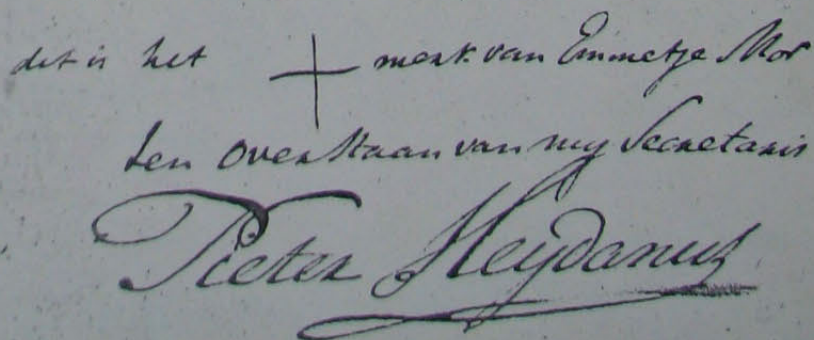 dit is het + merk van Emmetje Mor
ten overstaan van my Secretaris
Pieter Heydanus